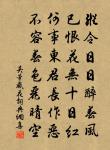 縱令日日醉春風
已恨花無十日紅
何事東君長作惡
不容春色麗晴空